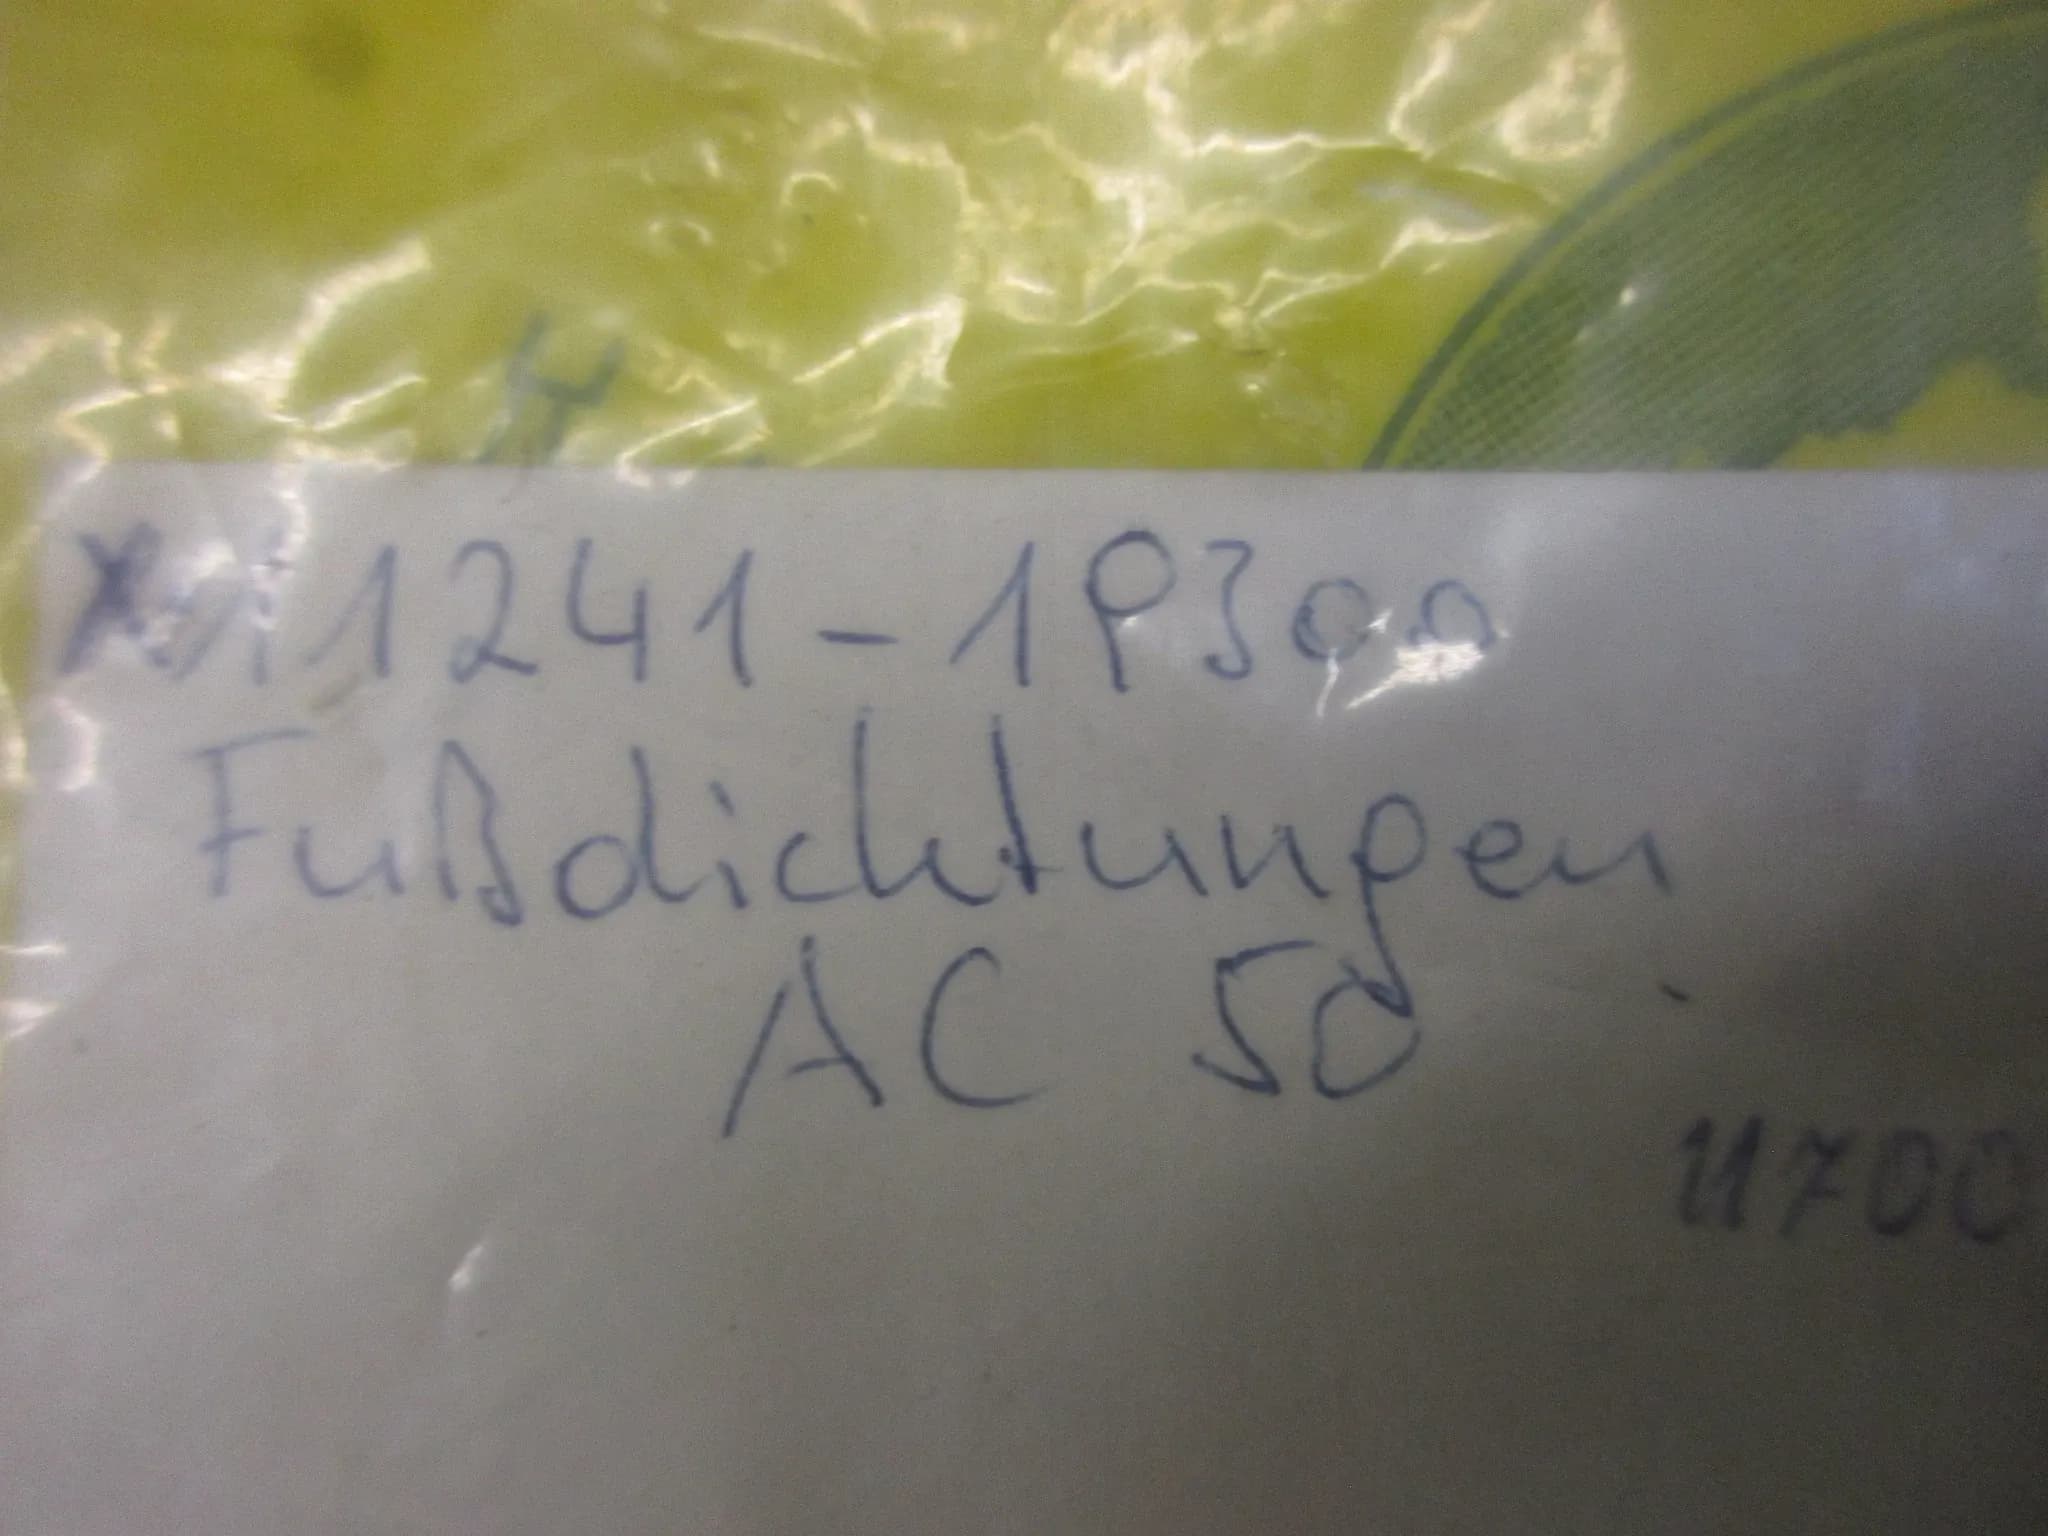 11241-19300
Fußdichtungen
AC 50
11700